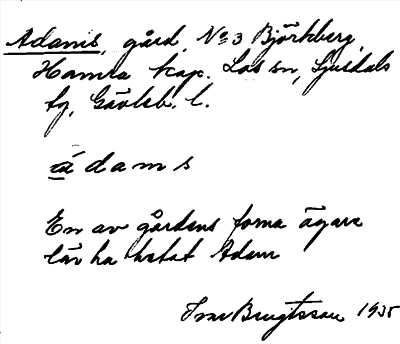 Adams, gård, No 3 Björkberg,
Hamra kap. Los sn, Ljusdals
tg, Gävleb. l.
àdams
En av gårdens forna ägare
lär ha hetat Adam
Ivar Bengtsson 1935